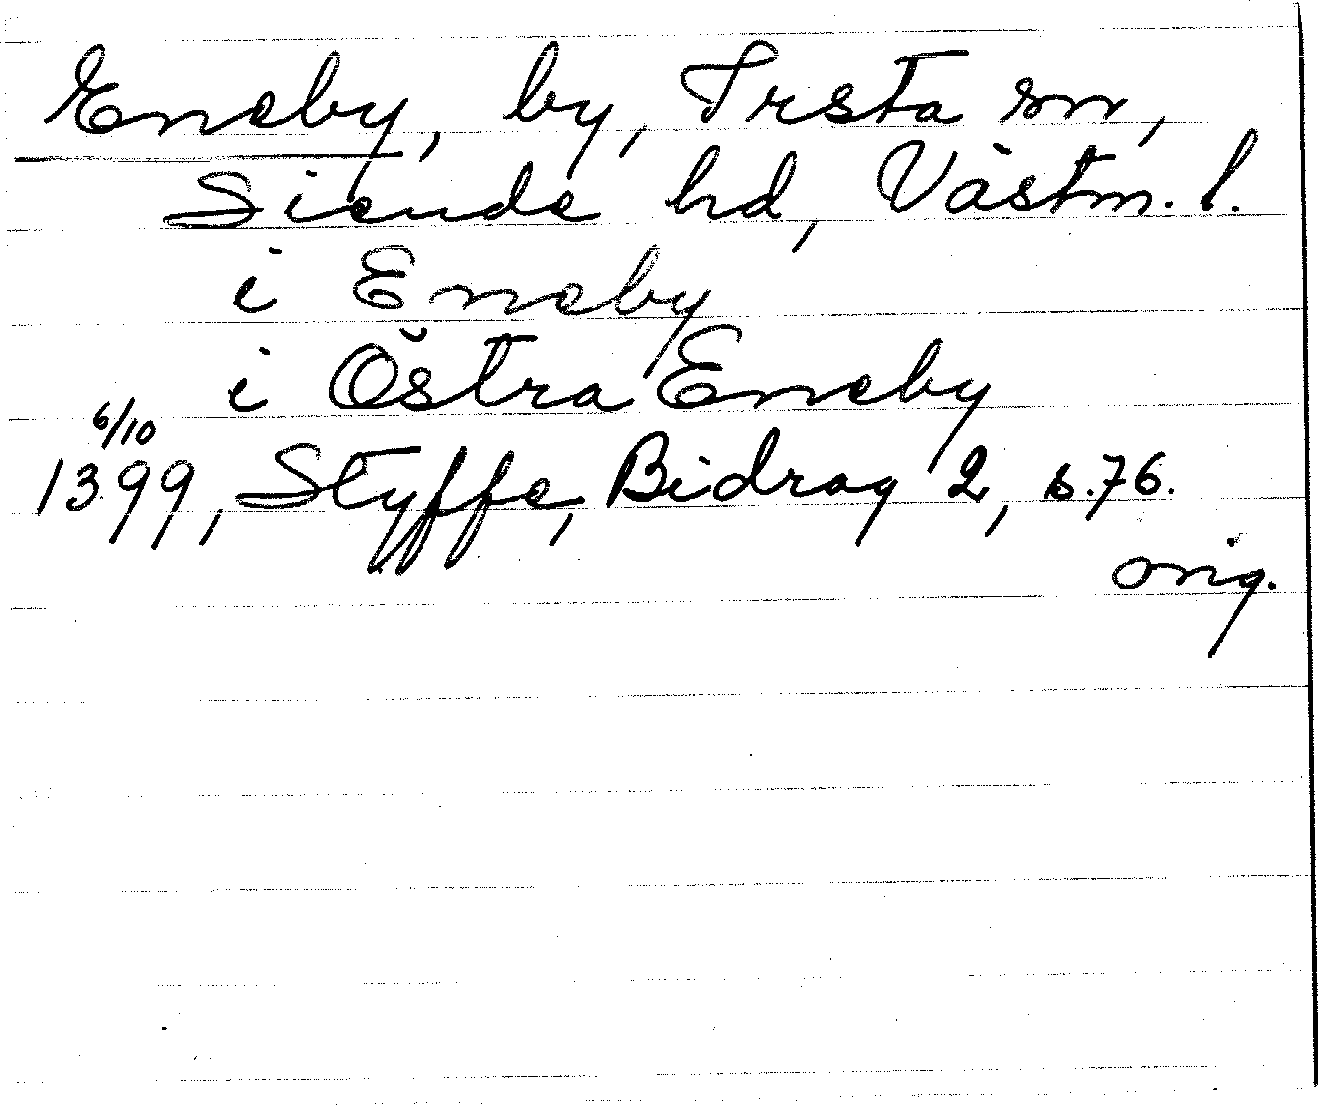 Eneby, by, Irsta sn,
Siende hd, Västm. l.
i Eneby
i Östra Eneby
6/10
1399, Styffe, Bidrag 2, s. 76.
orig.